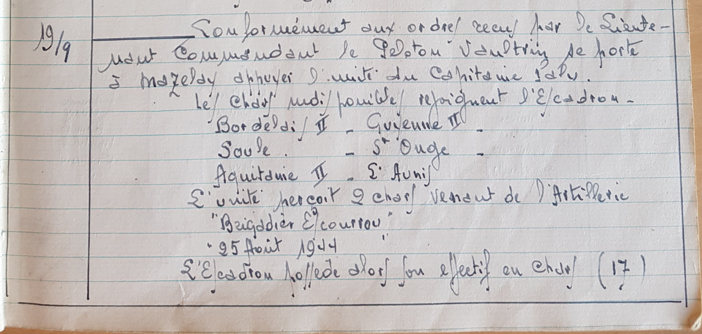 19/9
Conformément aux ordres reçus par le Lieute-
nant Commandant le Peloton Vaultrin se porte
à Mazelay appuyer l'unité du Capitaine
Les chars indisponibles rejoignent l'Escadron -
Bordelais II - Guyenne II -
Soule - St Onge -
Aquitaine II - L'Aunis
L'unité perçoit 2 chars venant de l'Artillerie
"Brigadier Escourrou"
"25 Août 1944"
L'Escadron possède alors son effectif en chars (17)